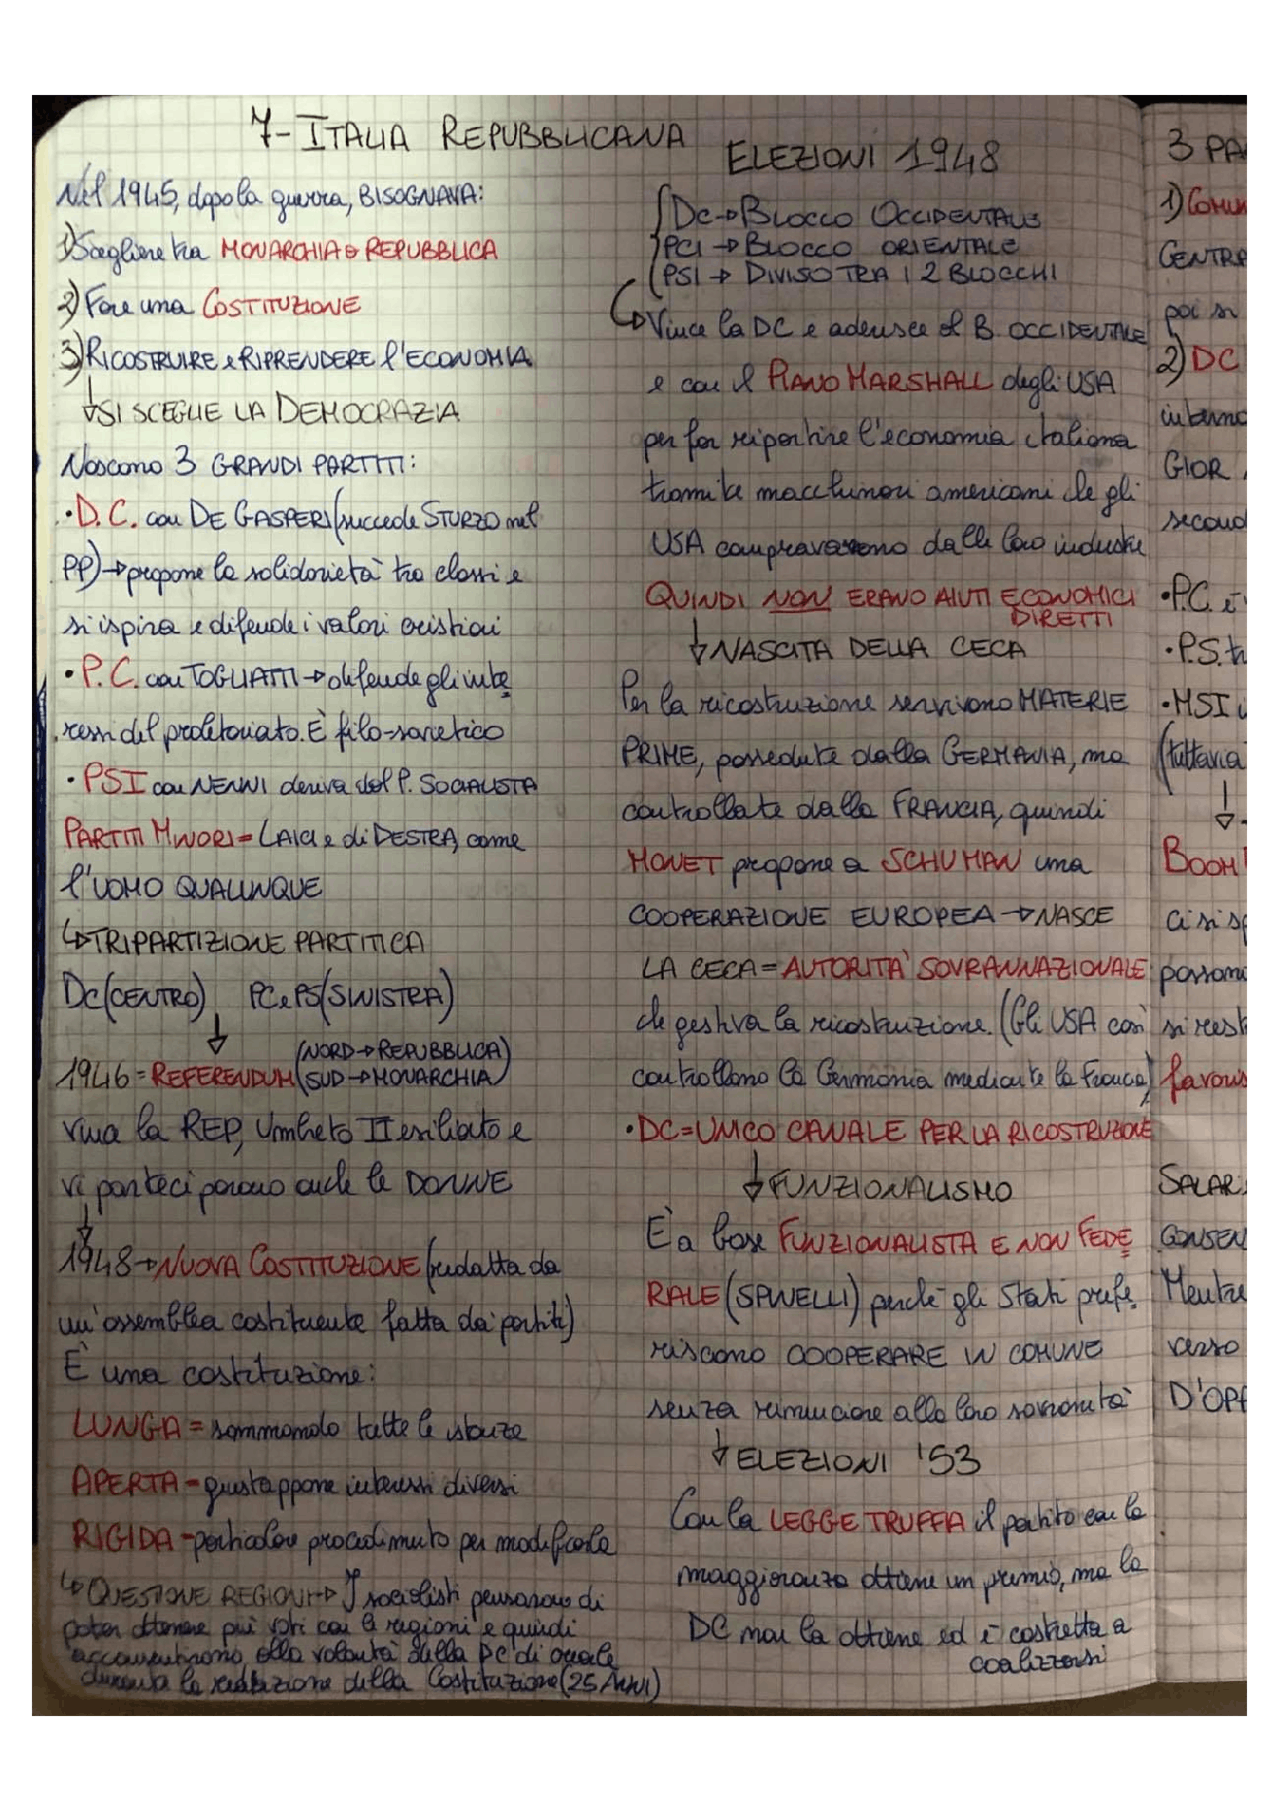 7- ITALIA REPUBBLICANA
Nel 1945, dopo la guerra, BISOGNAVA:
1) Scegliere tra MONARCHIA e REPUBBLICA
2) Fare una COSTITUZIONE
3) RICOSTRUIRE e RIPRENDERE l'ECONOMIA
SI SCEGLIE LA DEMOCRAZIA
Nascono 3 GRANDI PARTITI:
• D.C. con DE GASPERI (succede STURZO nel
PP) → propone la solidarietà tra classi e
si ispira e difende i valori cristiani
• P.C. con TOGLIATTI → difende gli inte
ressi del proletariato. È filo-sovietico
• PSI con NENNI deriva dal P. SOCIALISTA
PARTITI MINORI = LAICI e di DESTRA, come
l'UOMO QUALUNQUE
↳ TRIPARTIZIONE PARTITICA
DC (CENTRO) PC e PS (SINISTRA)
↓
1946 = REFERENDUM (NORD → REPUBBLICA)
(SUD → MONARCHIA)
vince la REP, Umberto II esiliato e
vi parteciparono anche le DONNE
↓
1948 → NUOVA COSTITUZIONE (redatta da
un'assemblea costituente fatta da partiti)
È una costituzione:
LUNGA = sommando tutte le istanze
APERTA = giustappone interessi diversi
RIGIDA = particolare procedimento per modificarla
↳ QUESTIONE REGIONI → I socialisti pensarono di
poter ottenere più voti con le regioni e quindi
acconsentirono alla volontà della DC di
durante la redazione della Costituzione (25 ANNI)
ELEZIONI 1948
DC → BLOCCO OCCIDENTALE
PCI → BLOCCO ORIENTALE
PSI → DIVISO TRA I 2 BLOCCHI
↳ Vince la DC e aderisce al B. OCCIDENTALE
e con il PIANO MARSHALL degli USA
per far ripartire l'economia italiana
tramite macchinari americani che gli
USA compravano dalle loro industrie
QUINDI NON ERANO AIUTI ECONOMICI
DIRETTI
↓ NASCITA DELLA CECA
Per la ricostruzione servivono MATERIE
PRIME, possedute dalla GERMANIA, ma
controllate dalla FRANCIA, quindi
MONET propone a SCHUMAN una
COOPERAZIONE EUROPEA → NASCE
LA CECA = AUTORITÀ SOVRANNAZIONALE
che gestiva la ricostruzione. (Gli USA così
controllano la Germania mediante la Francia)
• DC = UNICO CANALE PER LA RICOSTRUZIONE
↓ FUNZIONALISMO
È a base FUNZIONALISTA E NON FEDE
RALE (SPINELLI) perché gli Stati prefe
riscono COOPERARE IN COMUNE
senza rinunciare alla loro sovranità
↓ ELEZIONI '53
Con la LEGGE TRUFFA il partito con la
maggioranza ottiene un premio, ma la
DC non la ottiene ed è costretta a
coalizzarsi
3 PA
1) COMUN
CENTRA
poi si
2) DC
interno
GIOR
second
• P.C. è
• P.S. tr
• MSI
(tuttavia
↓
BOOM
ci si sp
possono
si rest
favoris
SALAR
CONSEN
Mentre
verso
D'OP